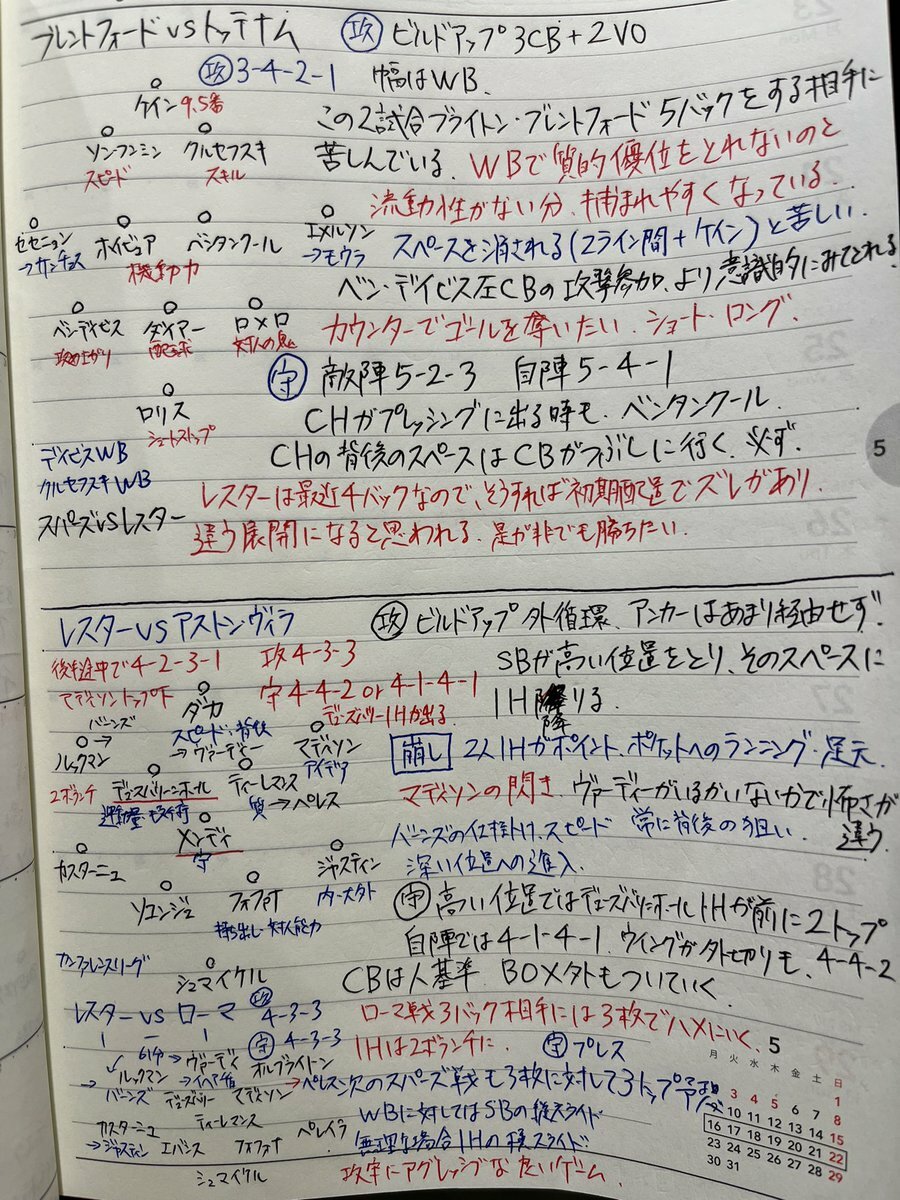 ブレントフォード vs トッテナム
攻 ビルドアップ 3CB+2VO
攻 3-4-2-1 幅はWB.
ケイン 9.5番
ソンフンミン クルゼフスキ
スピード スキル
この2試合ブライトン・ブレントフォード 5バックをする相手に
苦しんでいる. WBで質的優位をとれないのと
流動性がない分、捕まれやすくなっている.
スペースを消される(2ライン間+ケイン)と苦しい.
セセニョン ホイビュア ベンタンクール エメルソン
→サンチェス 機動力 →モウラ
ベン・デイビス左CBの攻撃参加、より意識的にみてとれる
カウンターでゴールを奪いたい. ショート・ロング.
ベンデイビス ダイアー ロメロ
攻め上がり 配球 対人の鬼
ロリス
シュートストップ
守 敵陣5-2-3 自陣5-4-1
CHがプレッシングに出る時も. ベンタンクール.
CHの背後のスペースはCBがつぶしに行く. 必ず
デイビスWB
クルセフスキWB
スパーズvsレスター
レスターは最近4バックなので、そうすれば初期配置でズレがあり
違う展開になると思われる. 是が非でも勝ちたい.
レスター vs アストンヴィラ
攻 ビルドアップ 外循環. アンカーはあまり経由せず.
SBが高い位置をとり、そのスペースに
IH 降りる
後半途中で4-2-3-1 攻4-3-3
マディソントップ下 守4-4-2 or 4-1-4-1
デューズバリーIHが出る
ダカ
スピード・背後
→ヴァーディー
バーンズ
ルックマン
マディソン
アイデア
2ボランチ デューズバリーホール ティーレマンス
運動量・技術 質→ペレス
メンディ
守
カスターニュ ジャスティン
内・大外
ソユンジュ フォファナ
持ち出し・対人能力
シュマイケル
崩し 2人IHがポイント、ポケットへのランニング・足元
マディソンの閃き. ヴァーディーがいるかいないかで怖さが
違う.
バーンズの仕掛け、スピード 常に背後の狙い.
深い位置への進入.
守 高い位置ではデューズバリーホールIHが前に2トップ
自陣では4-1-4-1. ウイングが外切りも、4-4-2
CBは人基準 BOX外もついていく.
カンファレンスリーグ
レスター vs ローマ 攻 4-3-3
1 - 1 守 4-3-3
ローマ戦3バック相手には3枚でハメにいく.
IHは2ボランチに. 守プレス
61分→ヴァーディ オルブライトン
ルックマン →イヘアナ
→バーンズ デューズバリー マディソン→ペレス
次のスパーズ戦も3枚に対して3トップ予想
WBに対してはSBの縦スライド
無理な場合IHの横スライド
ティーレマンス
カスターニュ エバンス フォファナ ペレイラ
→ジャスティン
シュマイケル
攻守にアグレッシブな良いゲーム.
5
5
月 火 水 木 金 土 日
1
3 4 5 6 7 8
10 11 12 13 14 15
16 17 18 19 20 21 22
23 24 25 26 27 28 29
30 31